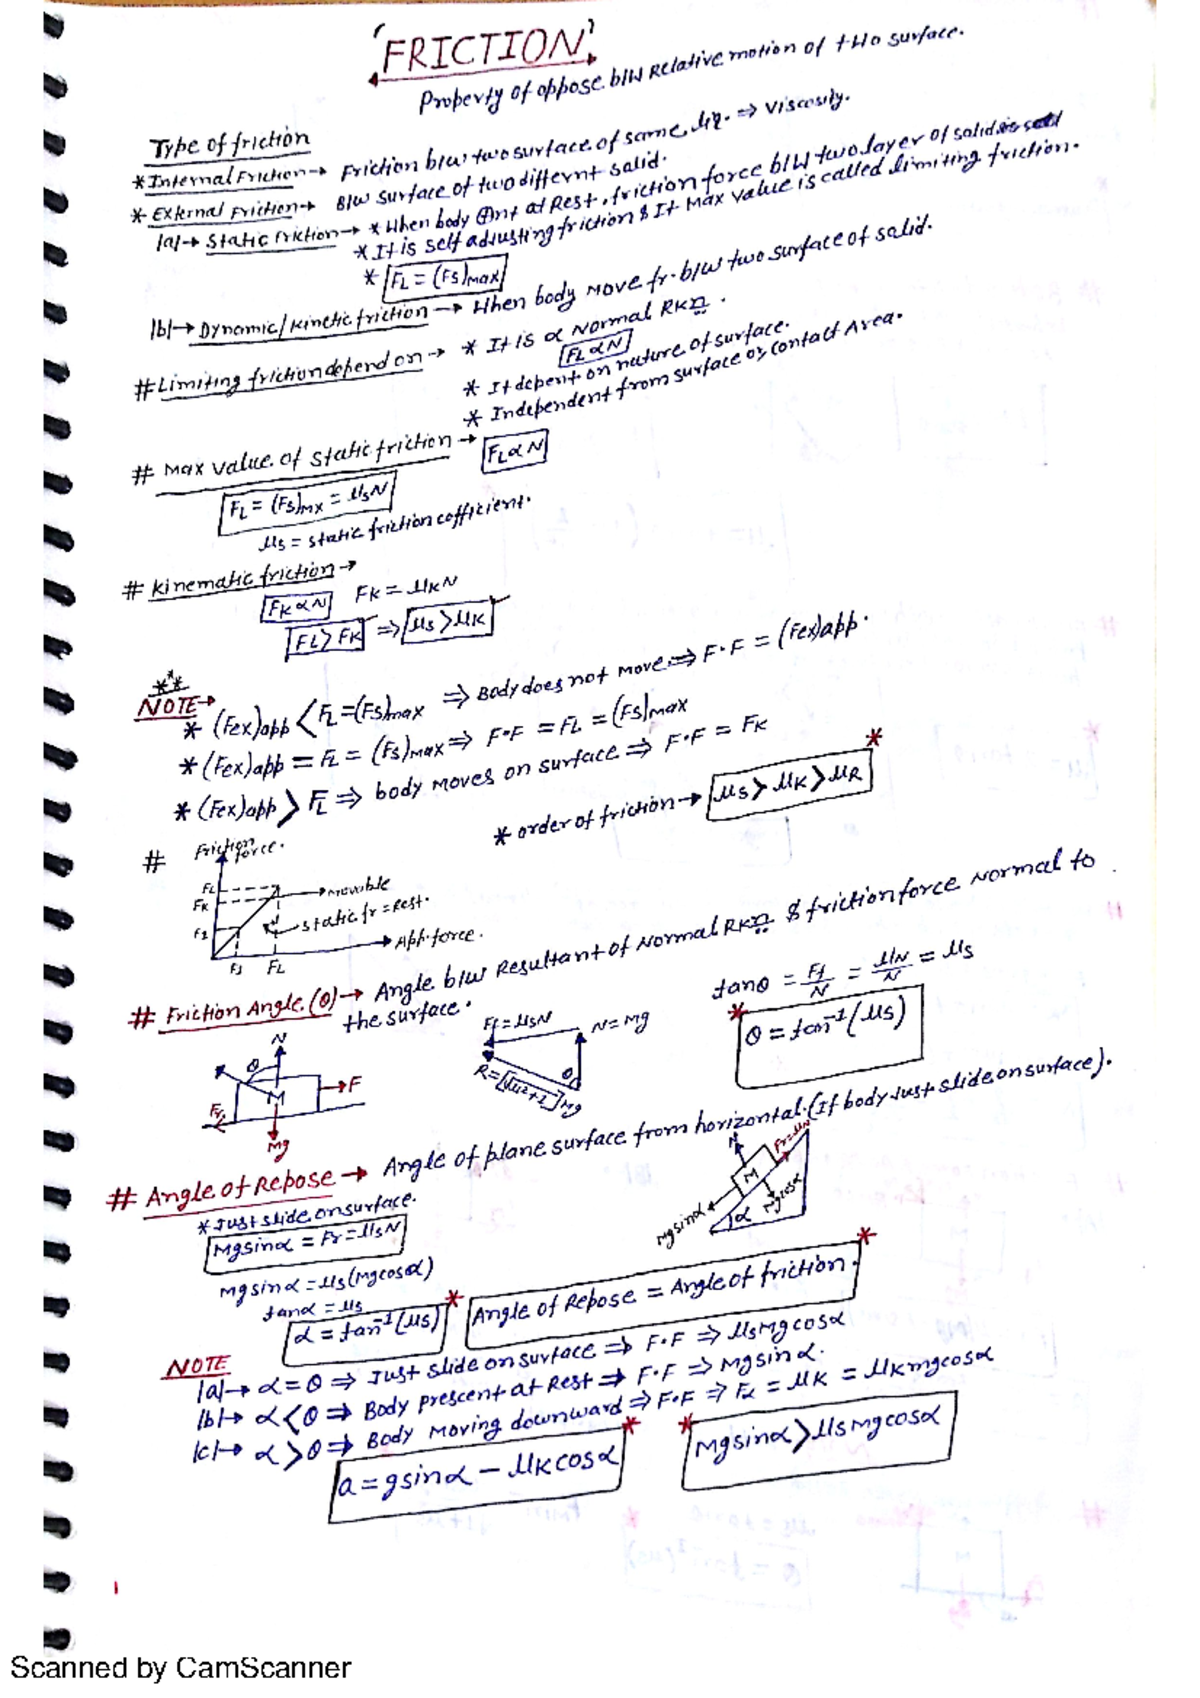 'FRICTION'
Property of oppose b/w Relative motion of two surface.
Type of friction
* Internal Friction → Friction b/w two surface of same liq. ⇒ Viscosity.
* External Friction → B/w surface of two differnt salid.
|a|→ Static friction → * When body at Rest, friction force b/w two layer of salid
* It is self adjusting friction & It Max value is called limiting friction.
* FL = (Fs)max
|b|→ Dynamic/kinetic friction → When body move fr. b/w two surface of salid.
# Limiting friction depend on → * It is α Normal RKn.
FL α N
* It depent on nature of surface.
* Independent from surface or contact Area.
# Max value of static friction → FL α N
FL = (Fs)mx = μsN
μs = static friction cofficient.
# kinematic friction →
FK α N FK = μKN
FL > FK ⇒ μs > μK
***
NOTE →
* (Fex)app < FL = (Fs)max ⇒ Body does not move ⇒ F.F = (Fex)app.
* (Fex)app = FL = (Fs)max ⇒ F.F = FL = (Fs)max
* (Fex)app > FL ⇒ body moves on surface ⇒ F.F = FK
* order of friction → μs > μK > μR *
# Friction force.
FL
FK
F1
→ movable
static fr = Rest.
App. force.
F1 FL
# Friction Angle (θ) → Angle b/w Resultant of Normal RKn & friction force Normal to
the surface.
tanθ = Ff/N = μN/N = μs
* θ = tan⁻¹(μs)
N θ F M Fr Mg
Ff = μsN N = Mg
R = [√μ²+1]Mg θ
# Angle of Repose → Angle of plane surface from horizontal. (If body Just slide on surface).
N Fr = μN M Mgsinα α Mgcosα
* Just slide on surface.
Mgsinα = Fr = μsN
Mgsinα = μs(Mgcosα)
tanα = μs
α = tan⁻¹(μs) * Angle of Repose = Angle of friction. *
NOTE
|a|→ α = θ ⇒ Just slide on surface ⇒ F.F ⇒ μsMgcosα
|b|→ α < θ ⇒ Body prescent at Rest ⇒ F.F ⇒ Mgsinα.
|c|→ α > θ ⇒ Body Moving downward ⇒ F.F ⇒ Fk = μK = μKmgcosα
a = gsinα − μKcosα * * Mgsinα > μsmgcosα
1
Scanned by CamScanner